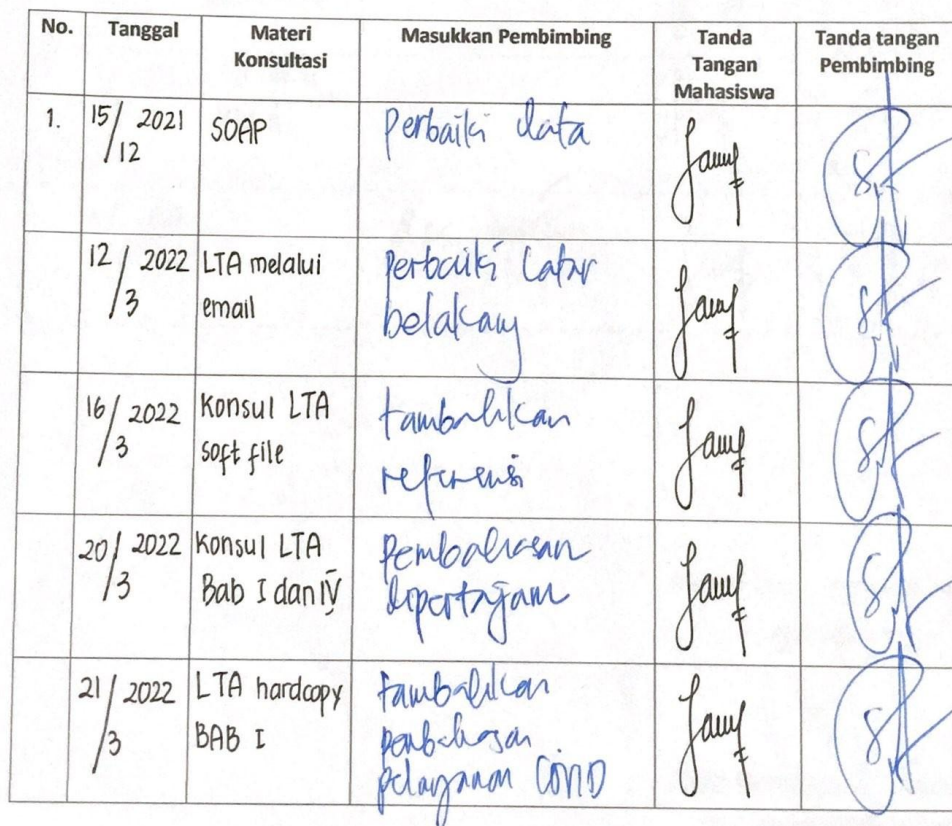 No. Tanggal Materi Konsultasi Masukkan Pembimbing Tanda Tangan Mahasiswa Tanda tangan Pembimbing
1. 15/12 2021 SOAP Perbaiki data
12/3 2022 LTA melalui email Perbaiki Latar belakang
16/3 2022 Konsul LTA soft file tambahkan referensi
20/3 2022 Konsul LTA Bab I dan IV Pembahasan dipertajam
21/3 2022 LTA hardcopy BAB I tambahkan pembahasan pelayanan COVID